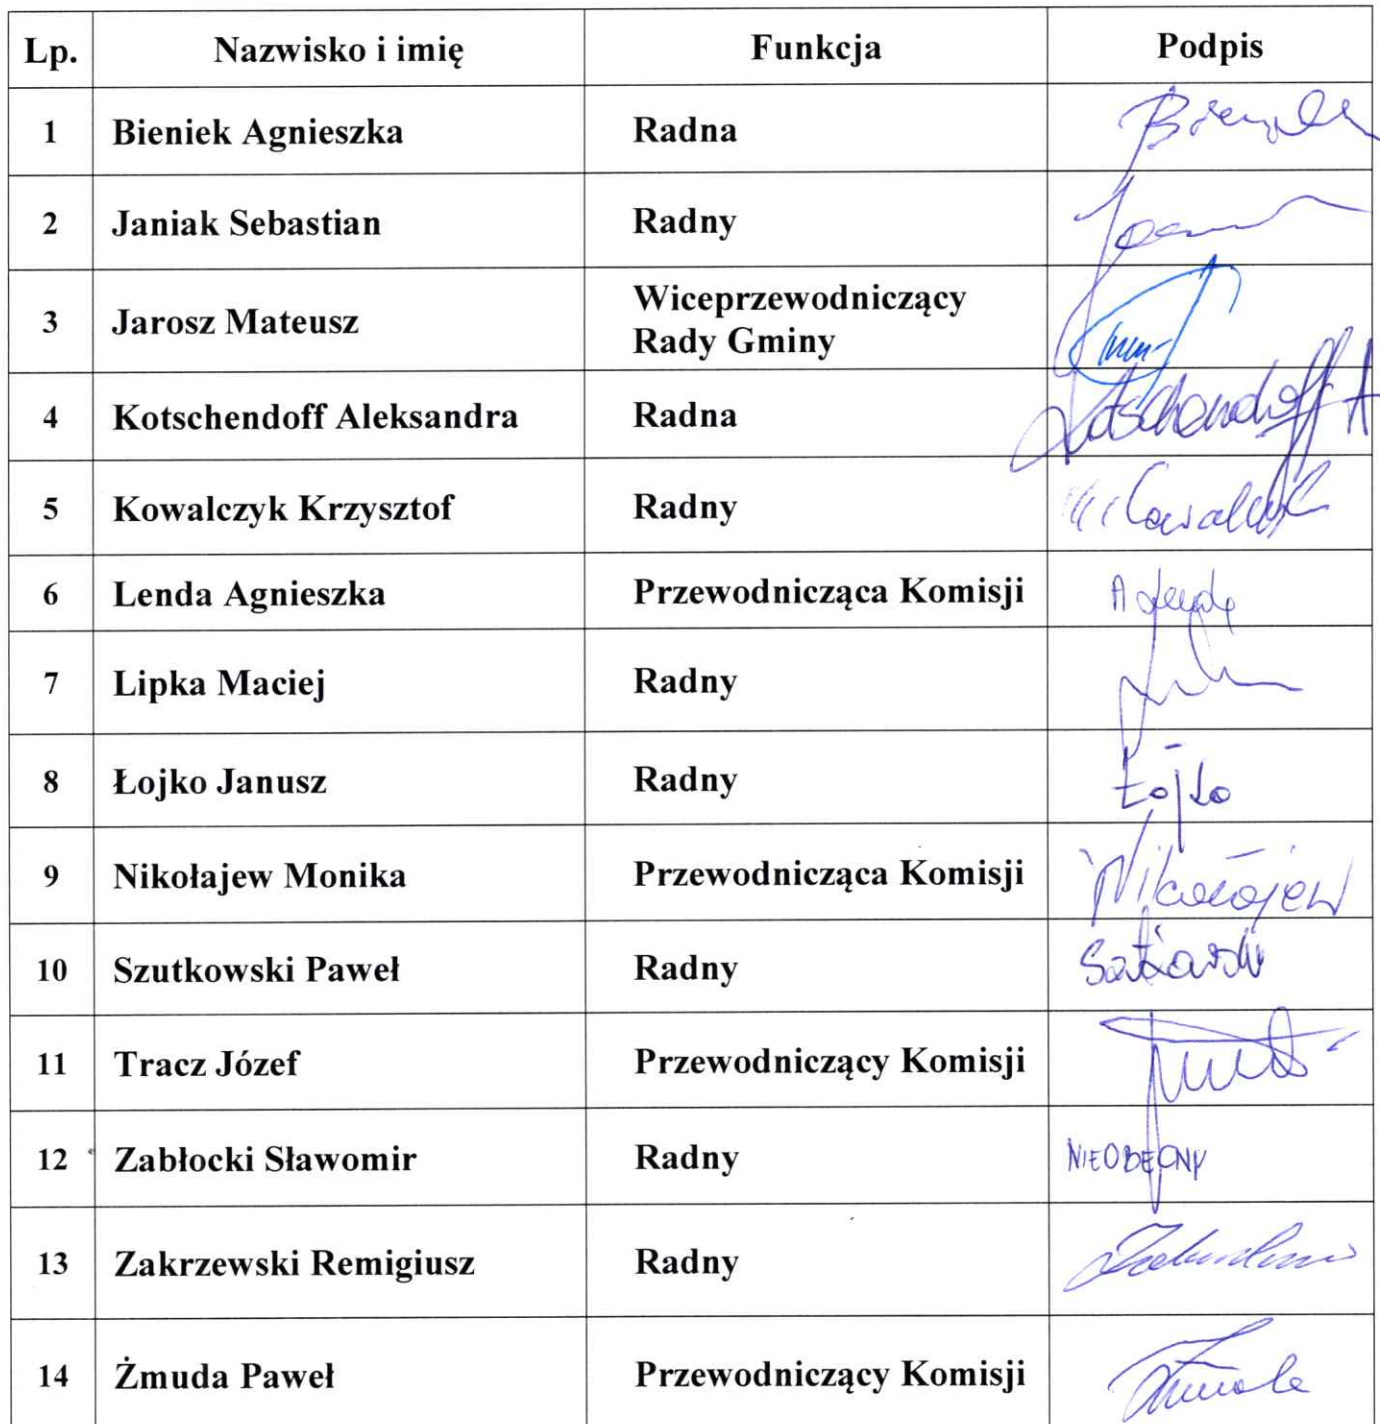 Lp. Nazwisko i imię Funkcja Podpis
1 Bieniek Agnieszka Radna
2 Janiak Sebastian Radny
3 Jarosz Mateusz Wiceprzewodniczący
Rady Gminy
4 Kotschendoff Aleksandra Radna Kotschendoff A
5 Kowalczyk Krzysztof Radny
6 Lenda Agnieszka Przewodnicząca Komisji A Lenda
7 Lipka Maciej Radny
8 Łojko Janusz Radny Łojko
9 Nikołajew Monika Przewodnicząca Komisji Nikołajew
10 Szutkowski Paweł Radny
11 Tracz Józef Przewodniczący Komisji
12 Zabłocki Sławomir Radny NIEOBECNY
13 Zakrzewski Remigiusz Radny
14 Żmuda Paweł Przewodniczący Komisji